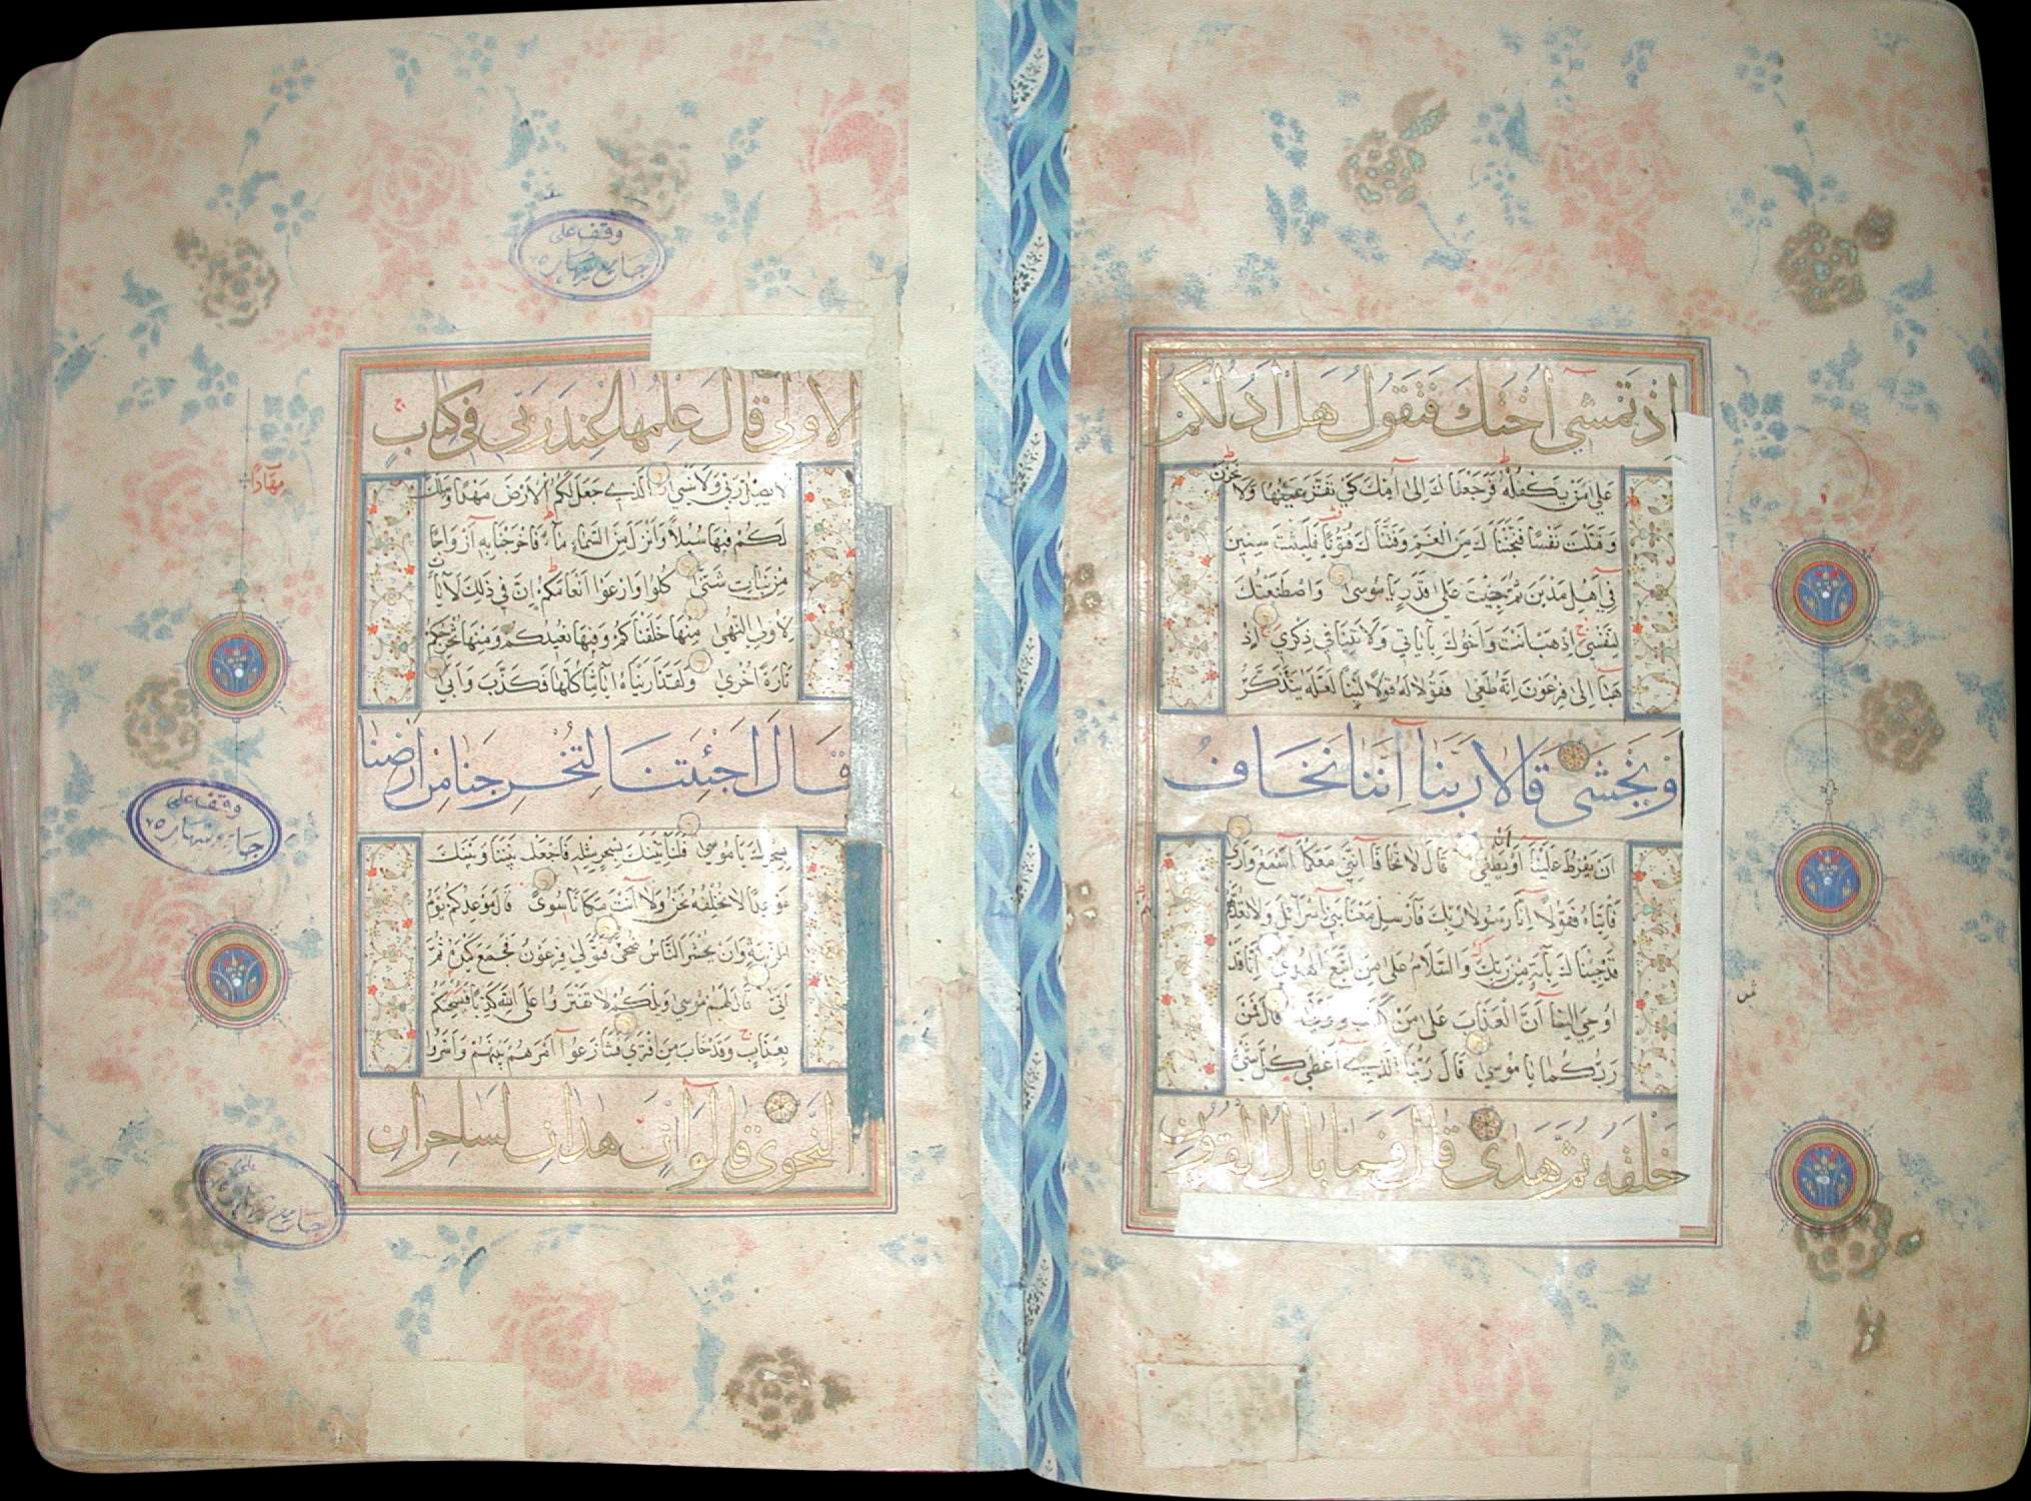 إِذْ تَمْشِي أُخْتُكَ فَتَقُولُ هَلْ أَدُلُّكُمْ
عَلَى مَنْ يَكْفُلُهُ فَرَجَعْنَاكَ إِلَى أُمِّكَ كَيْ تَقَرَّ عَيْنُهَا وَلَا تَحْزَنَ
وَقَتَلْتَ نَفْسًا فَنَجَّيْنَاكَ مِنَ الْغَمِّ وَفَتَنَّاكَ فُتُونًا فَلَبِثْتَ سِنِينَ
فِي أَهْلِ مَدْيَنَ ثُمَّ جِئْتَ عَلَى قَدَرٍ يَا مُوسَى وَاصْطَنَعْتُكَ
لِنَفْسِي اِذْهَبْ أَنْتَ وَأَخُوكَ بِآيَاتِي وَلَا تَنِيَا فِي ذِكْرِي اِذْ
هَبَا إِلَى فِرْعَوْنَ إِنَّهُ طَغَى فَقُولَا لَهُ قَوْلًا لَيِّنًا لَعَلَّهُ يَتَذَكَّرُ
أَوْ يَخْشَى قَالَا رَبَّنَا إِنَّنَا نَخَافُ
أَنْ يَفْرُطَ عَلَيْنَا أَوْ أَنْ يَطْغَى قَالَ لَا تَخَافَا إِنَّنِي مَعَكُمَا أَسْمَعُ وَأَرَى
فَأْتِيَاهُ فَقُولَا إِنَّا رَسُولَا رَبِّكَ فَأَرْسِلْ مَعَنَا بَنِي إِسْرَائِيلَ وَلَا تُعَذِّبْهُمْ
قَدْ جِئْنَاكَ بِآيَةٍ مِنْ رَبِّكَ وَالسَّلَامُ عَلَى مَنِ اتَّبَعَ الْهُدَى إِنَّا قَدْ
أُوحِيَ إِلَيْنَا أَنَّ الْعَذَابَ عَلَى مَنْ كَذَّبَ وَتَوَلَّى قَالَ فَمَنْ
رَبُّكُمَا يَا مُوسَى قَالَ رَبُّنَا الَّذِي أَعْطَى كُلَّ شَيْءٍ
خَلْقَهُ ثُمَّ هَدَى قَالَ فَمَا بَالُ الْقُرُونِ
ثمن
الْأُولَى قَالَ عِلْمُهَا عِنْدَ رَبِّي فِي كِتَابٍ
لَا يَضِلُّ رَبِّي وَلَا يَنْسَى الَّذِي جَعَلَ لَكُمُ الْأَرْضَ مَهْدًا وَسَلَكَ
لَكُمْ فِيهَا سُبُلًا وَأَنْزَلَ مِنَ السَّمَاءِ مَاءً فَأَخْرَجْنَا بِهِ أَزْوَاجًا
مِنْ نَبَاتٍ شَتَّى كُلُوا وَارْعَوْا أَنْعَامَكُمْ إِنَّ فِي ذَلِكَ لَآيَاتٍ
لِأُولِي النُّهَى مِنْهَا خَلَقْنَاكُمْ وَفِيهَا نُعِيدُكُمْ وَمِنْهَا نُخْرِجُكُمْ
تَارَةً أُخْرَى وَلَقَدْ أَرَيْنَاهُ آيَاتِنَا كُلَّهَا فَكَذَّبَ وَأَبَى
قَالَ أَجِئْتَنَا لِتُخْرِجَنَا مِنْ أَرْضِنَا
بِسِحْرِكَ يَا مُوسَى فَلَنَأْتِيَنَّكَ بِسِحْرٍ مِثْلِهِ فَاجْعَلْ بَيْنَنَا وَبَيْنَكَ
مَوْعِدًا لَا نُخْلِفُهُ نَحْنُ وَلَا أَنْتَ مَكَانًا سُوًى قَالَ مَوْعِدُكُمْ يَوْمُ
الزِّينَةِ وَأَنْ يُحْشَرَ النَّاسُ ضُحًى فَتَوَلَّى فِرْعَوْنُ فَجَمَعَ كَيْدَهُ ثُمَّ
أَتَى قَالَ لَهُمْ مُوسَى وَيْلَكُمْ لَا تَفْتَرُوا عَلَى اللَّهِ كَذِبًا فَيُسْحِتَكُمْ
بِعَذَابٍ وَقَدْ خَابَ مَنِ افْتَرَى فَتَنَازَعُوا أَمْرَهُمْ بَيْنَهُمْ وَأَسَرُّوا
النَّجْوَى قَالُوا إِنْ هَذَانِ لَسَاحِرَانِ
مِهَادًا
وقف على
جامع
وقف على
جامع